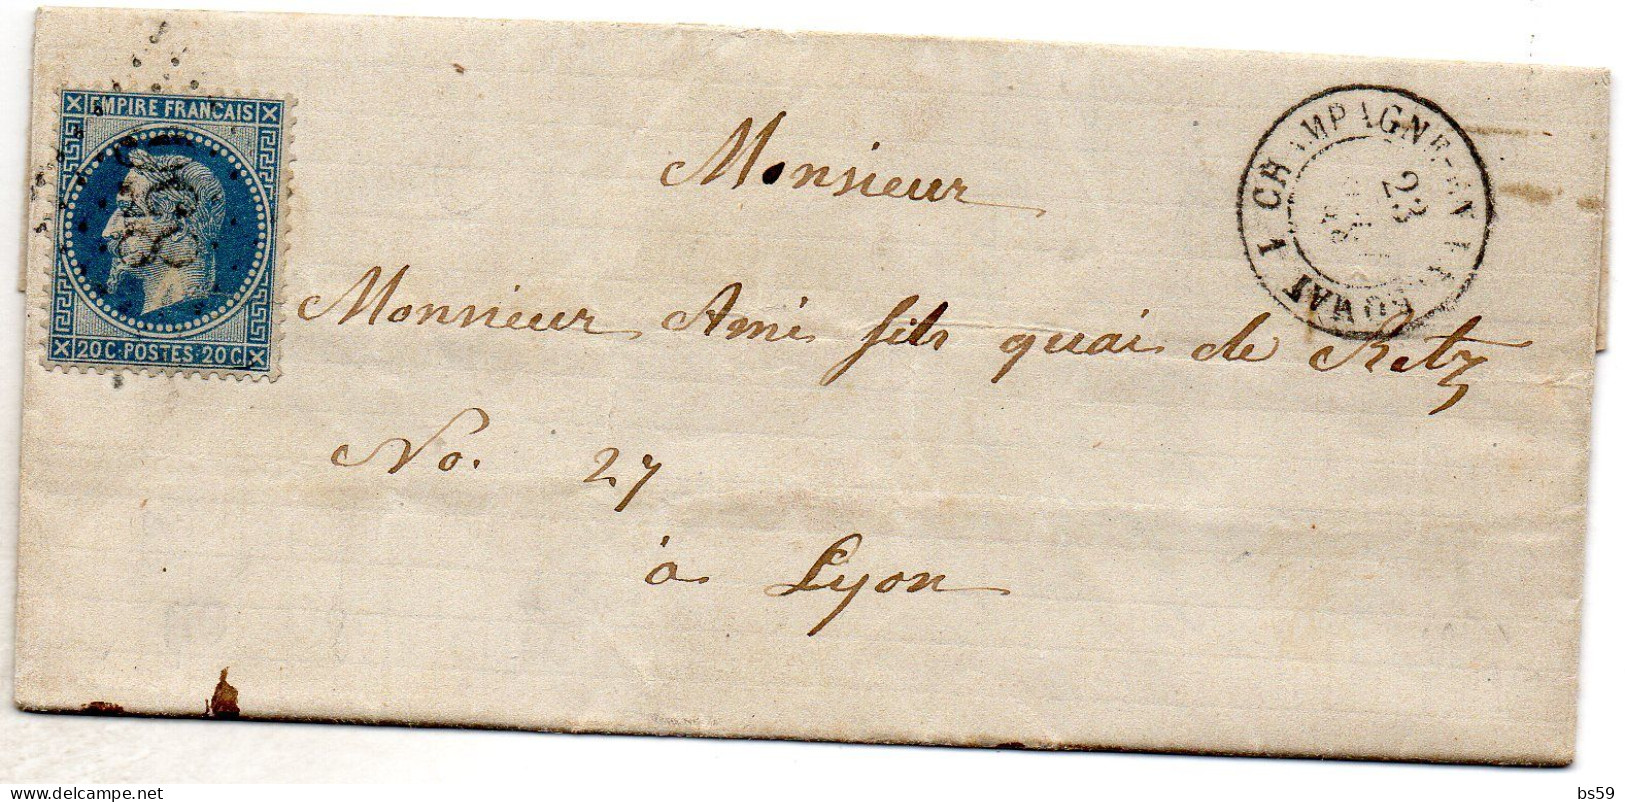 EMPIRE FRANCAIS
20C POSTES 20C
CHAMPAGNE-EN
23
Monsieur
Monsieur Ami fils quai de Retz
No. 27
à Lyon
www.delcampe.net
bs59